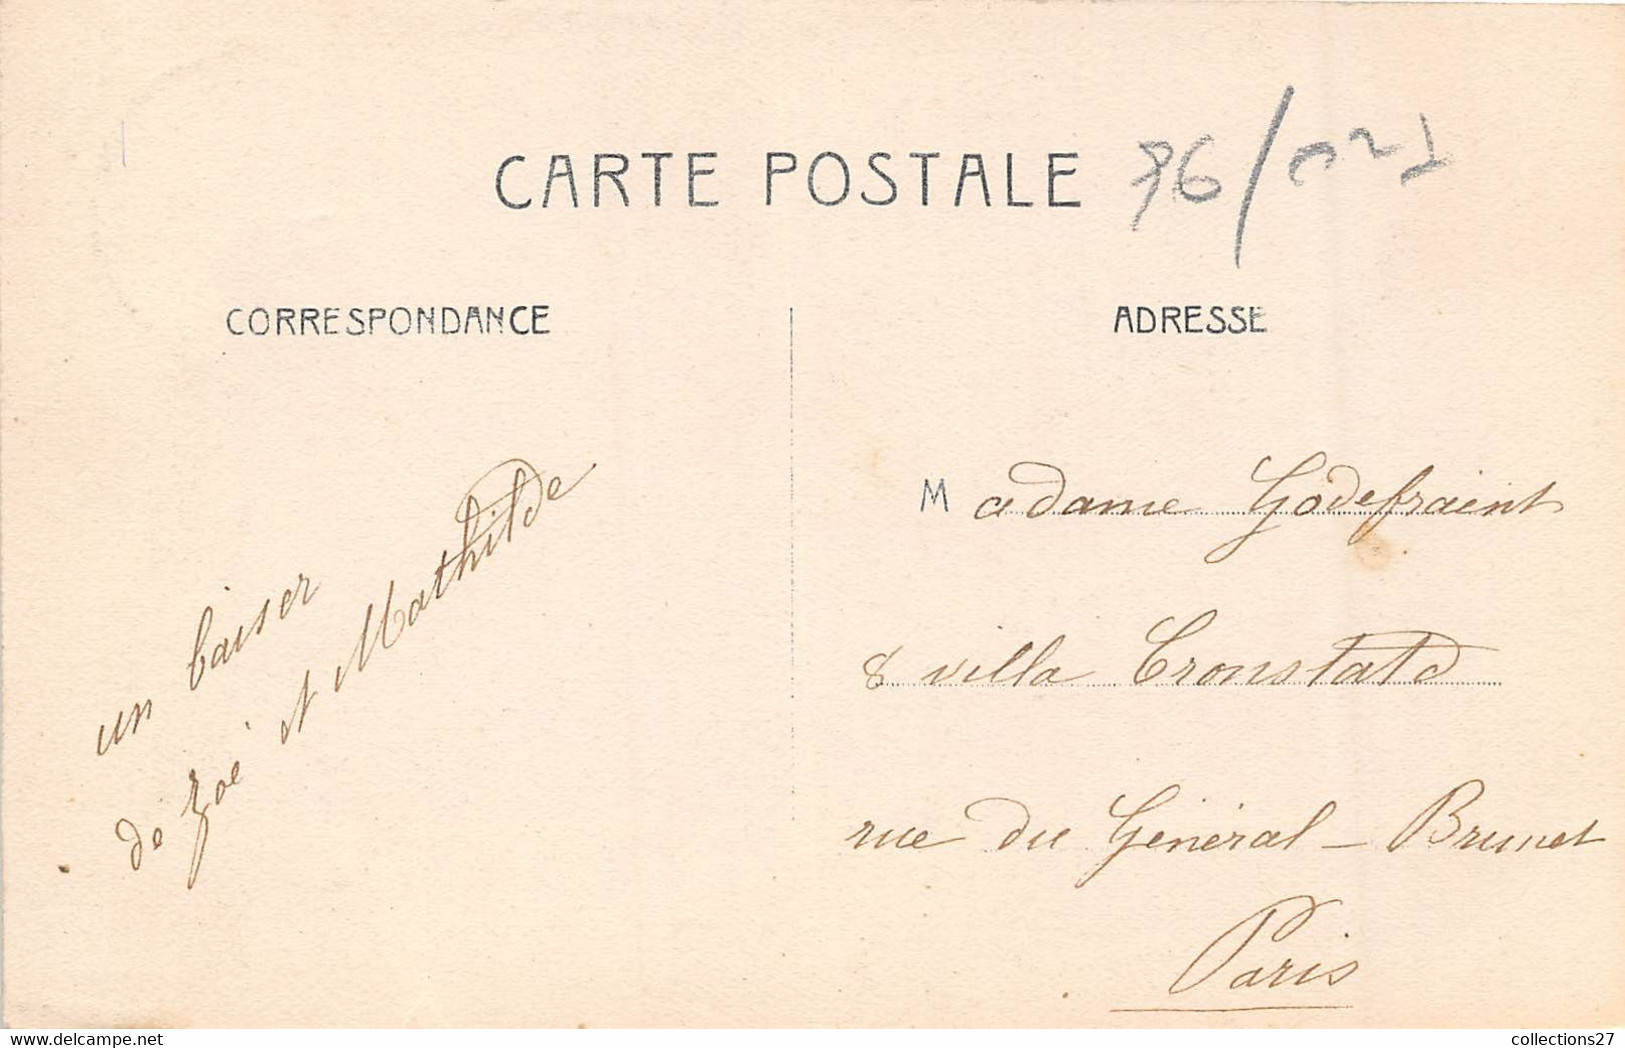 CARTE POSTALE 76/021
CORRESPONDANCE
ADRESSE
un baiser
de Zoé et Mathilde
Madame Godefraint
8 villa Cronstatd
rue du Général - Brunet
Paris
collections27